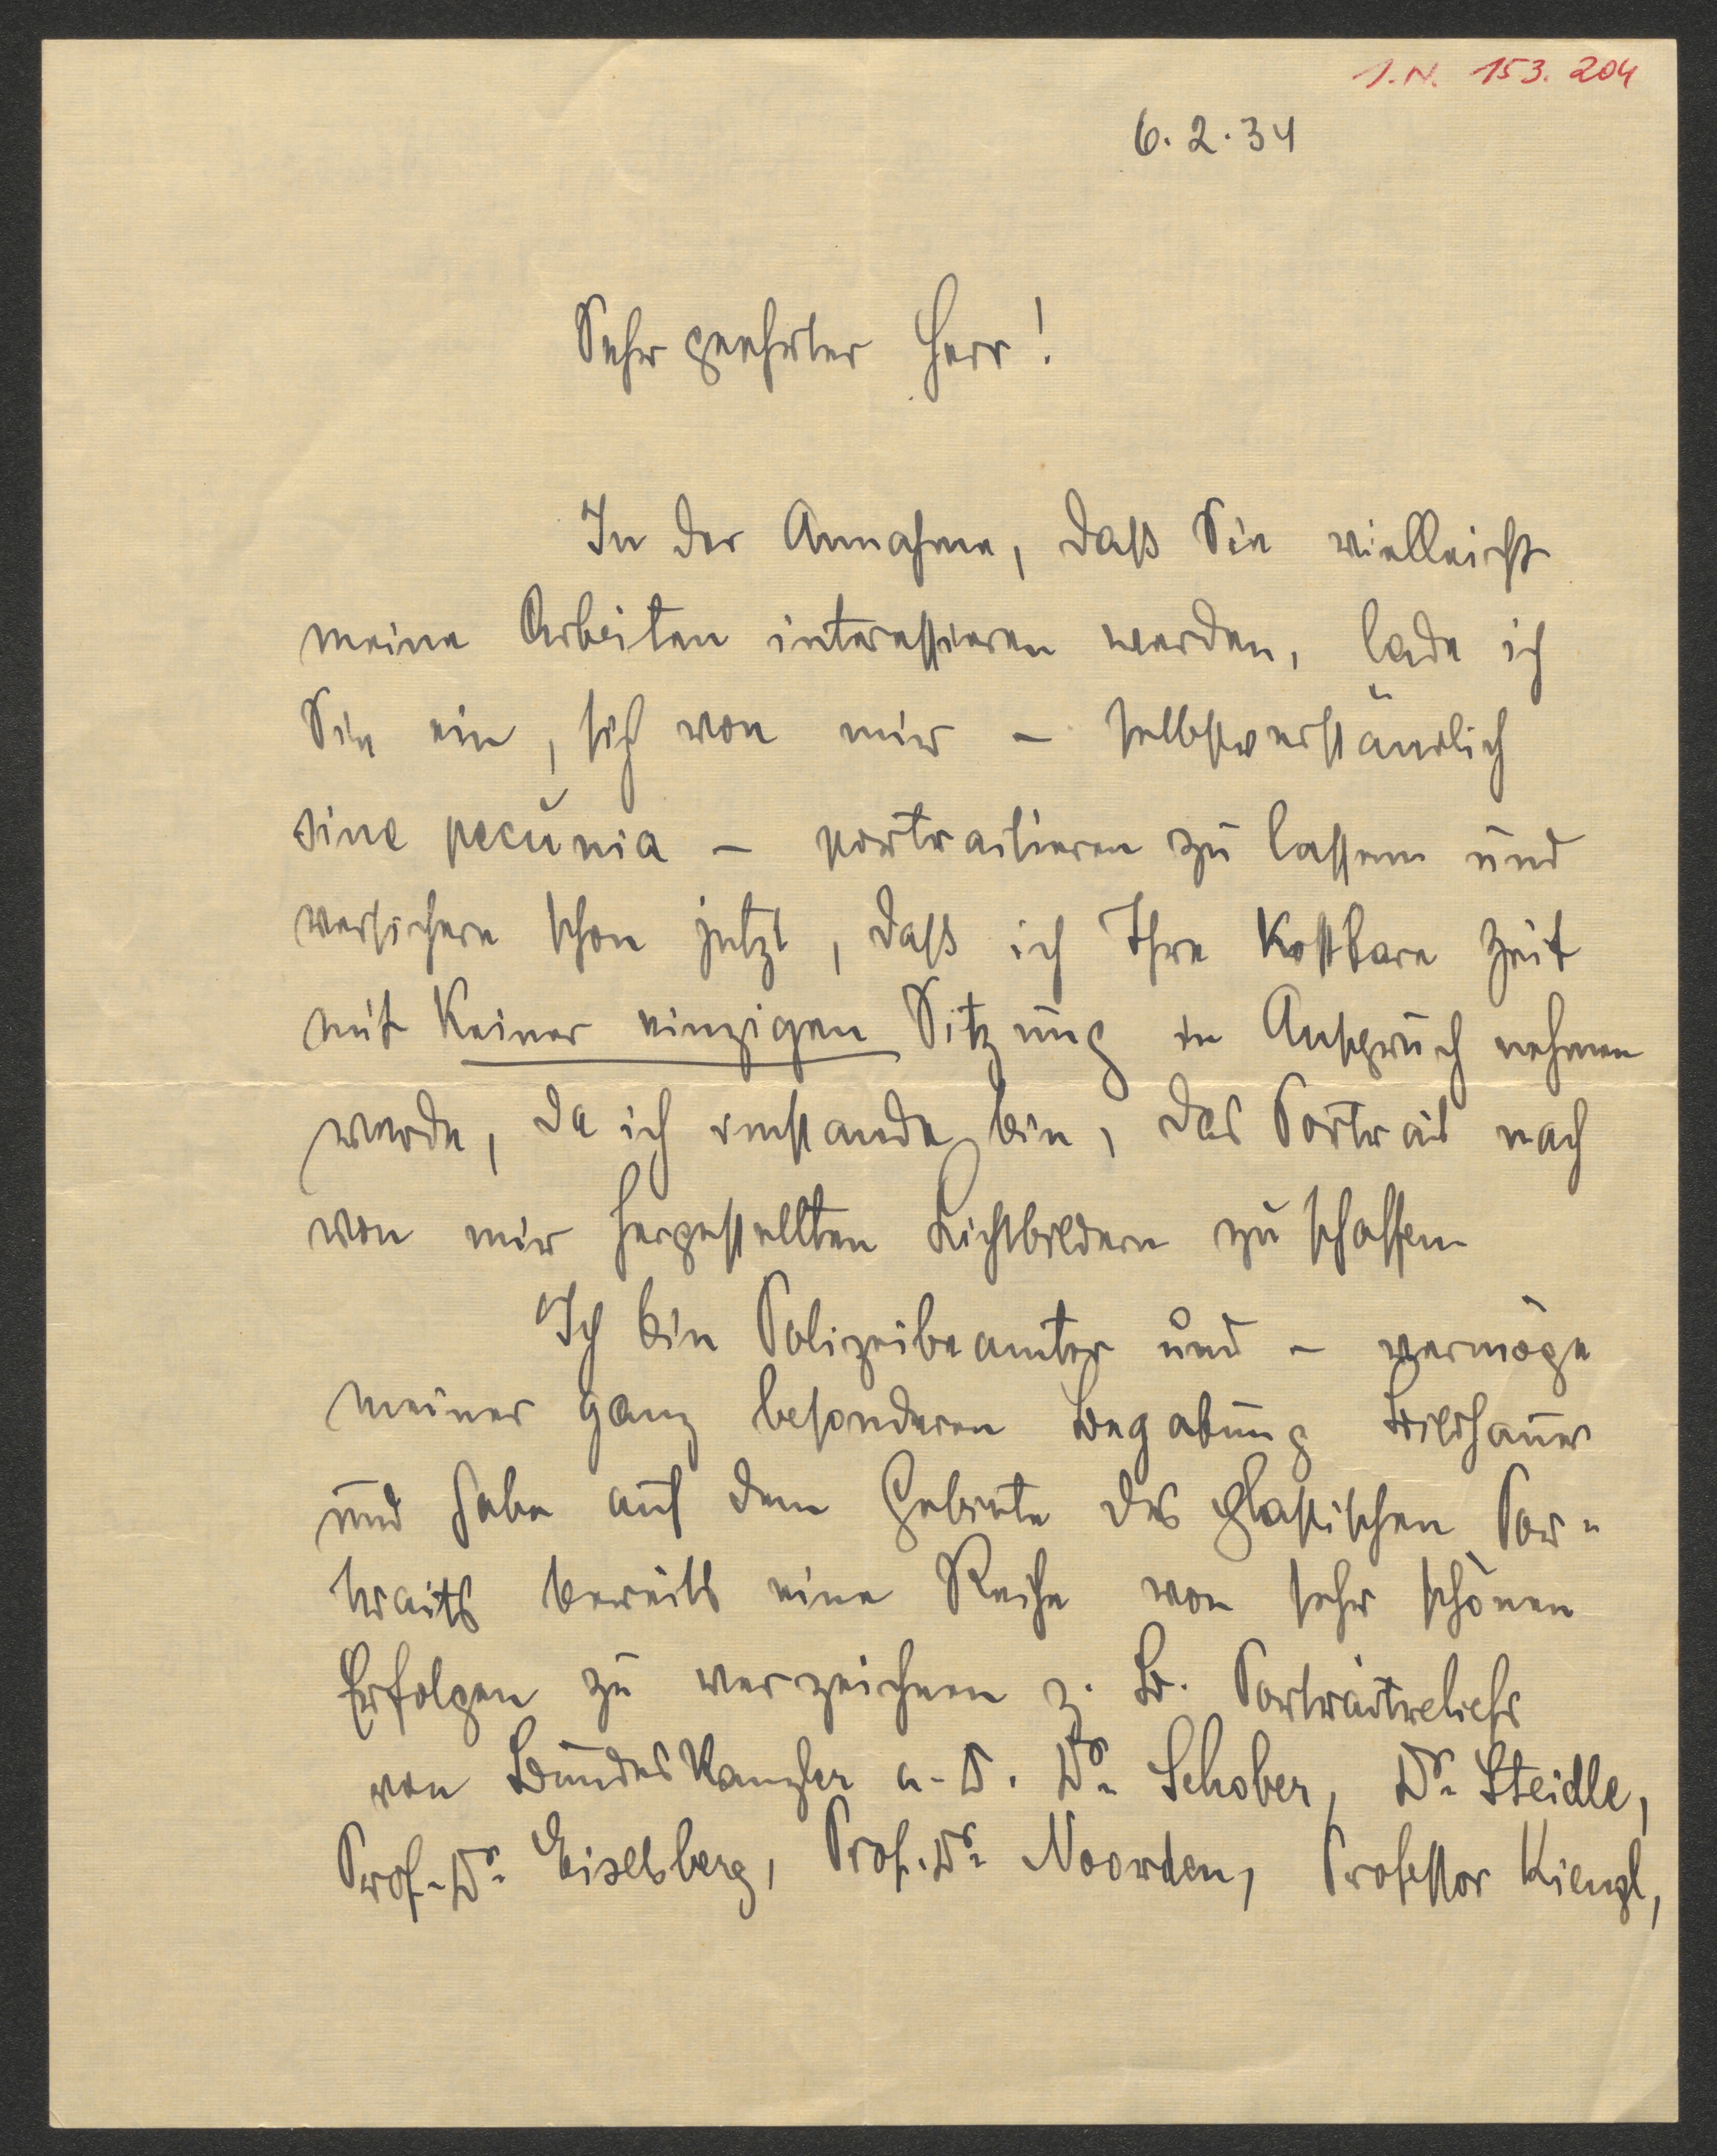 I.N. 153.204
6.2.34
Sehr geehrter Herr!
In der Annahme, daß Sie vielleicht
meine Arbeiten interessieren werden, lade ich
Sie ein, sich von mir – selbstverständlich
sine pecunia – portraitieren zu lassen und
versichere schon jetzt, daß ich Ihre kostbare Zeit
mit keiner einzigen Sitzung in Anspruch nehmen
werde, da ich imstande bin, das Portrait nach
von mir hergestellten Lichtbildern zu schaffen
Ich bin Polizeibeamter und – vermöge
meiner ganz besonderen Begabung Bildhauer
und habe auf dem Gebiete des plastischen Por-
traits bereits eine Reihe von sehr schönen
Erfolgen zu verzeichnen z. B. Portraitreliefs
von Bundeskanzler a. D. Dr. Schober, Dr. Steidle,
Prof. Dr. Eiselsberg, Prof. Dr. Noorden, Professor Kienzl,